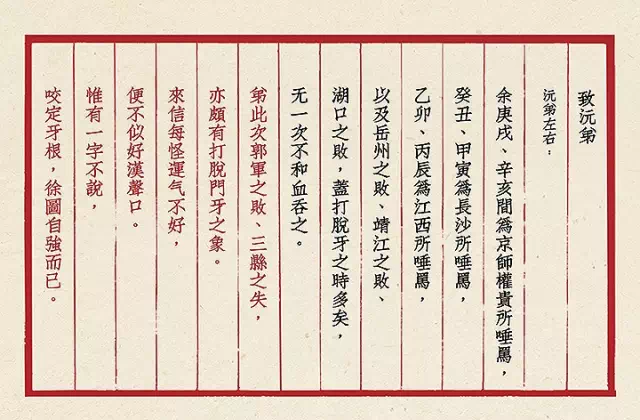 致沅弟
沅弟左右：
余庚戌、辛亥間爲京師權貴所唾罵，
癸丑、甲寅爲長沙所唾罵，
乙卯、丙辰爲江西所唾罵，
以及岳州之敗、靖江之敗、
湖口之敗，蓋打脫牙之時多矣，
无一次不和血吞之。
弟此次郭軍之敗、三縣之失，
亦頗有打脫門牙之象。
來信每怪運气不好，
便不似好漢聲口。
惟有一字不說，
咬定牙根，徐圖自強而已。